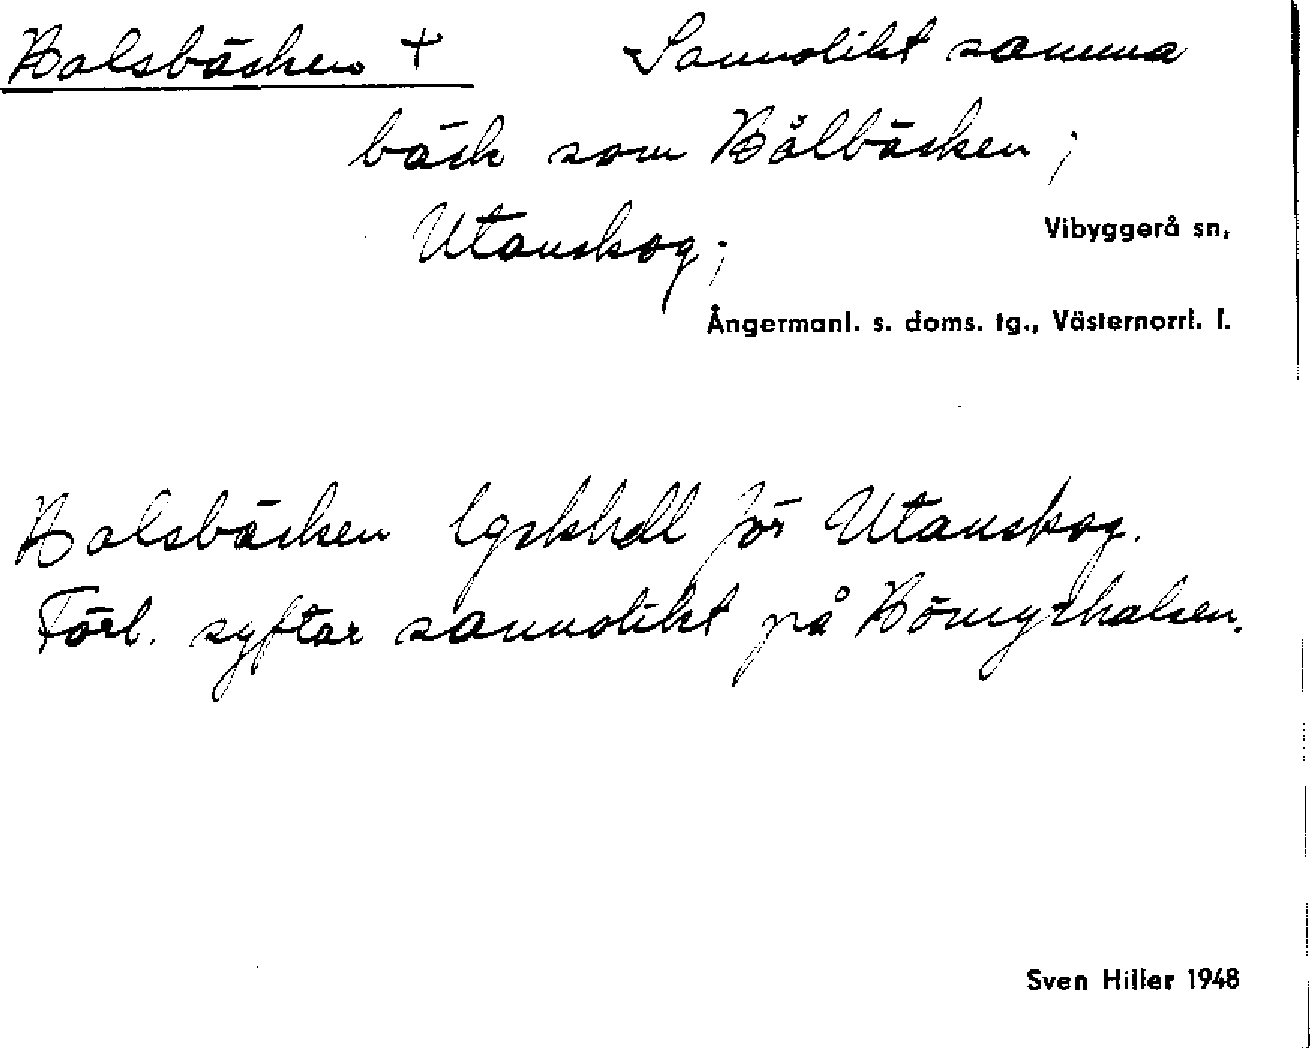 Balsbäcken +
Sannolikt samma
bäck som Bålbäcken;
Utanskog;
Vibyggerå sn,
Ångermanl. s. doms. tg., Västernorrl. l.
Balsbäcken lgskhdl för Utanskog.
Förl. syftar sannolikt på Bömyrhalsen.
Sven Hiller 1948